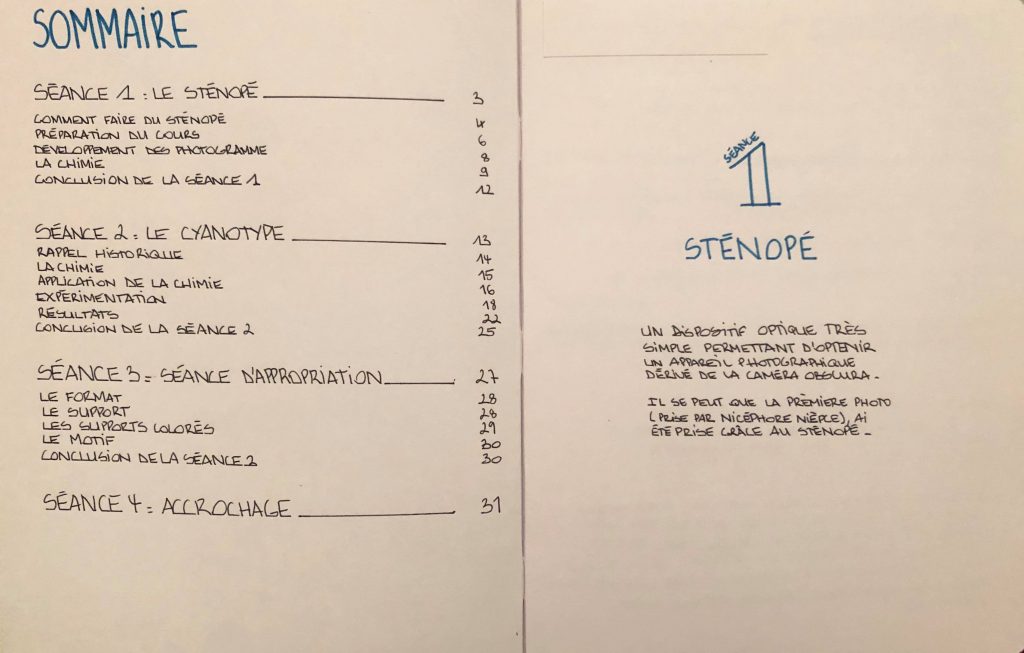 SOMMAIRE
SÉANCE 1 : LE STÉNOPÉ 3
COMMENT FAIRE DU STÉNOPÉ 4
PRÉPARATION DU COURS 6
DÉVELOPPEMENT DES PHOTOGRAMME 8
LA CHIMIE 9
CONCLUSION DE LA SÉANCE 1 12
SÉANCE 2 : LE CYANOTYPE 13
RAPPEL HISTORIQUE 14
LA CHIMIE 15
APPLICATION DE LA CHIMIE 16
EXPÉRIMENTATION 18
RÉSULTATS 22
CONCLUSION DE LA SÉANCE 2 25
SÉANCE 3 : SÉANCE D'APPROPRIATION 27
LE FORMAT 28
LE SUPPORT 28
LES SUPPORTS COLORÉS 29
LE MOTIF 30
CONCLUSION DE LA SÉANCE 3 30
SÉANCE 4 : ACCROCHAGE 31
SÉANCE
1
STÉNOPÉ
UN DISPOSITIF OPTIQUE TRÈS
SIMPLE PERMETTANT D'OPTENIR
UN APPAREIL PHOTOGRAPHIQUE
DÉRIVÉ DE LA CAMÉRA OBSCURA.
IL SE PEUT QUE LA PRÈMIERE PHOTO
(PRISE PAR NICÉPHORE NIÈPCE), AI
ÉTÉ PRISE GRÂCE AU STÉNOPÉ.